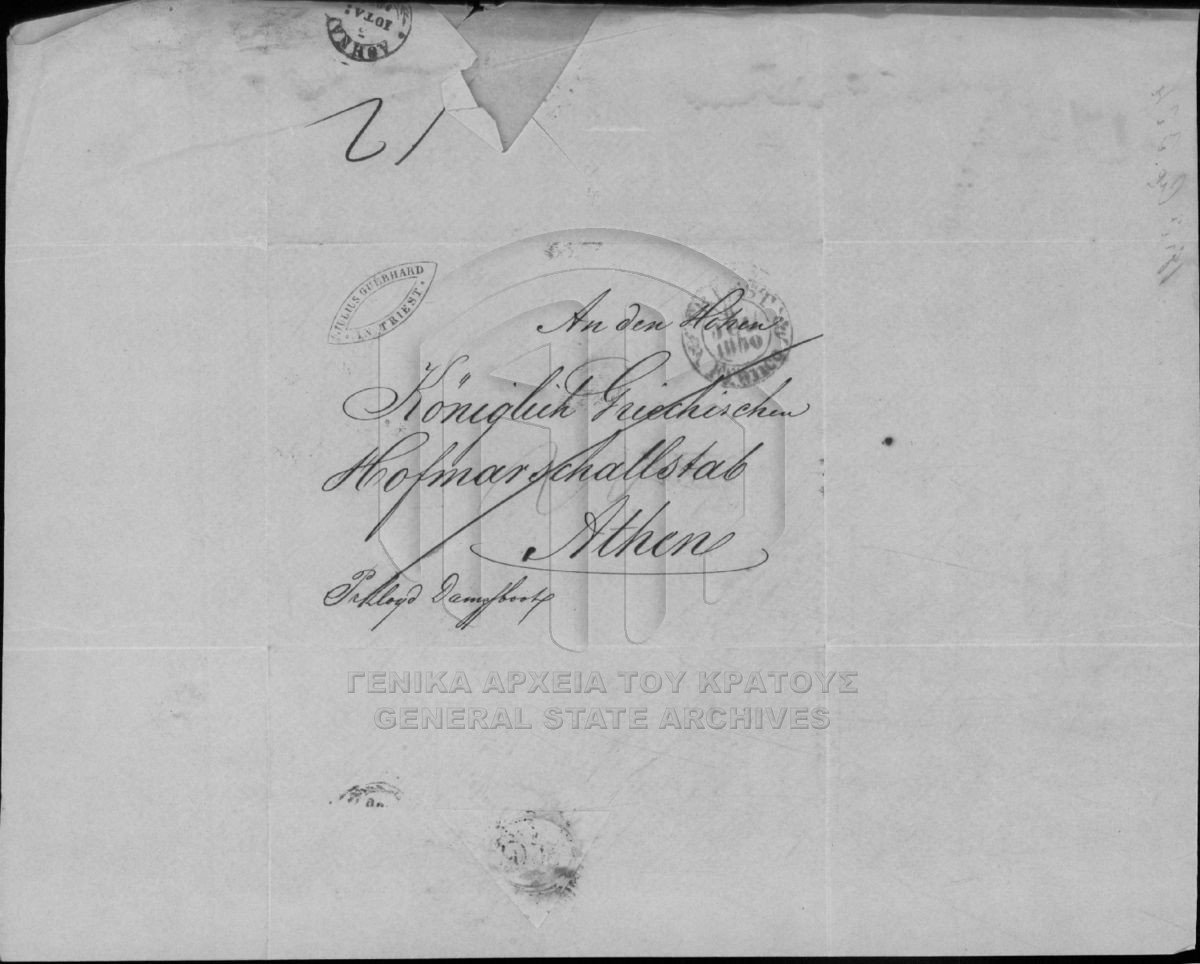 ΑΘΗΝΑΙ
3
ΙΟΥΛ:
21
JULIUS GUEBHARD
IN TRIEST.
An den Hohen
Königlich Griechischen
Hofmarschallstab
Athen
Pr Lloyd Dampfboot
ΓΕΝΙΚΑ ΑΡΧΕΙΑ ΤΟΥ ΚΡΑΤΟΥΣ
GENERAL STATE ARCHIVES